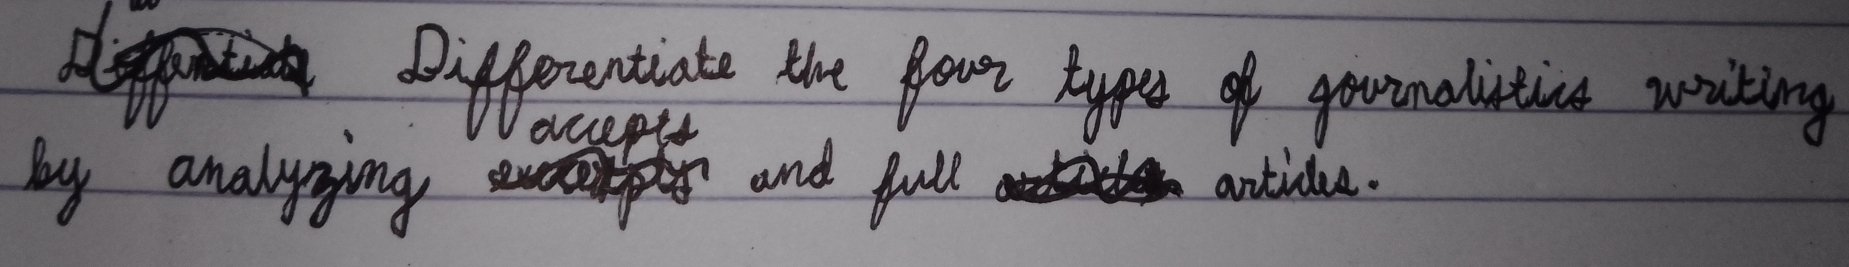 Differentiate the four types of journalistics writing
accepts
by analyzing and full articles.